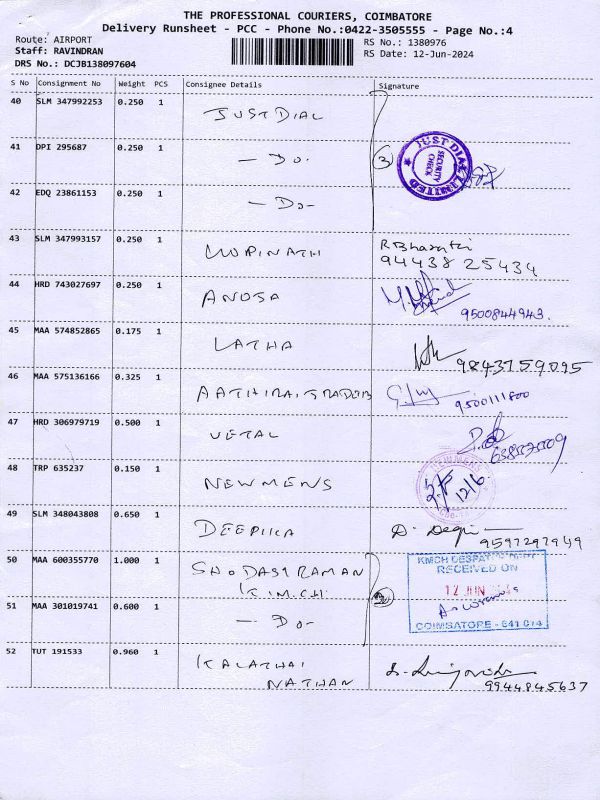 THE PROFESSIONAL COURIERS, COIMBATORE
Delivery Runsheet - PCC - Phone No.:0422-3505555 - Page No.:4
Route: AIRPORT
RS No.: 1380976
Staff: RAVINDRAN
RS Date: 12-Jun-2024
DRS No.: DCJB138097604
S No Consignment No Weight PCS Consignee Details Signature
40 SLM 347992253 0.250 1 JUSTDIAL
41 DPI 295687 0.250 1 - Do - 3
JUST DIAL LIMITED
SECURITY CHECK
42 EDQ 23861153 0.250 1 - Do -
43 SLM 347993157 0.250 1 GOPINATH R Bharathi
94438 25434
44 HRD 743027697 0.250 1 ANOSA
9500844943.
45 MAA 574852865 0.175 1 LATHA 9843759095
46 MAA 575136166 0.325 1 AATHIRAI TRADERS
9500111800
47 HRD 306979719 0.500 1 VETAL
48 TRP 635237 0.150 1 NEWMENS 12/6
49 SLM 348043808 0.650 1 DEEPIKA D. Deepi
9597297949
50 MAA 600355770 1.000 1 SHODASIRAMAN
KMCH
KMCH DESPATCH
RECEIVED ON
12 JUN
COIMBATORE - 641 014
51 MAA 301019741 0.600 1 - Do -
52 TUT 191533 0.960 1 KALATHAI
NATHAN
9944845637